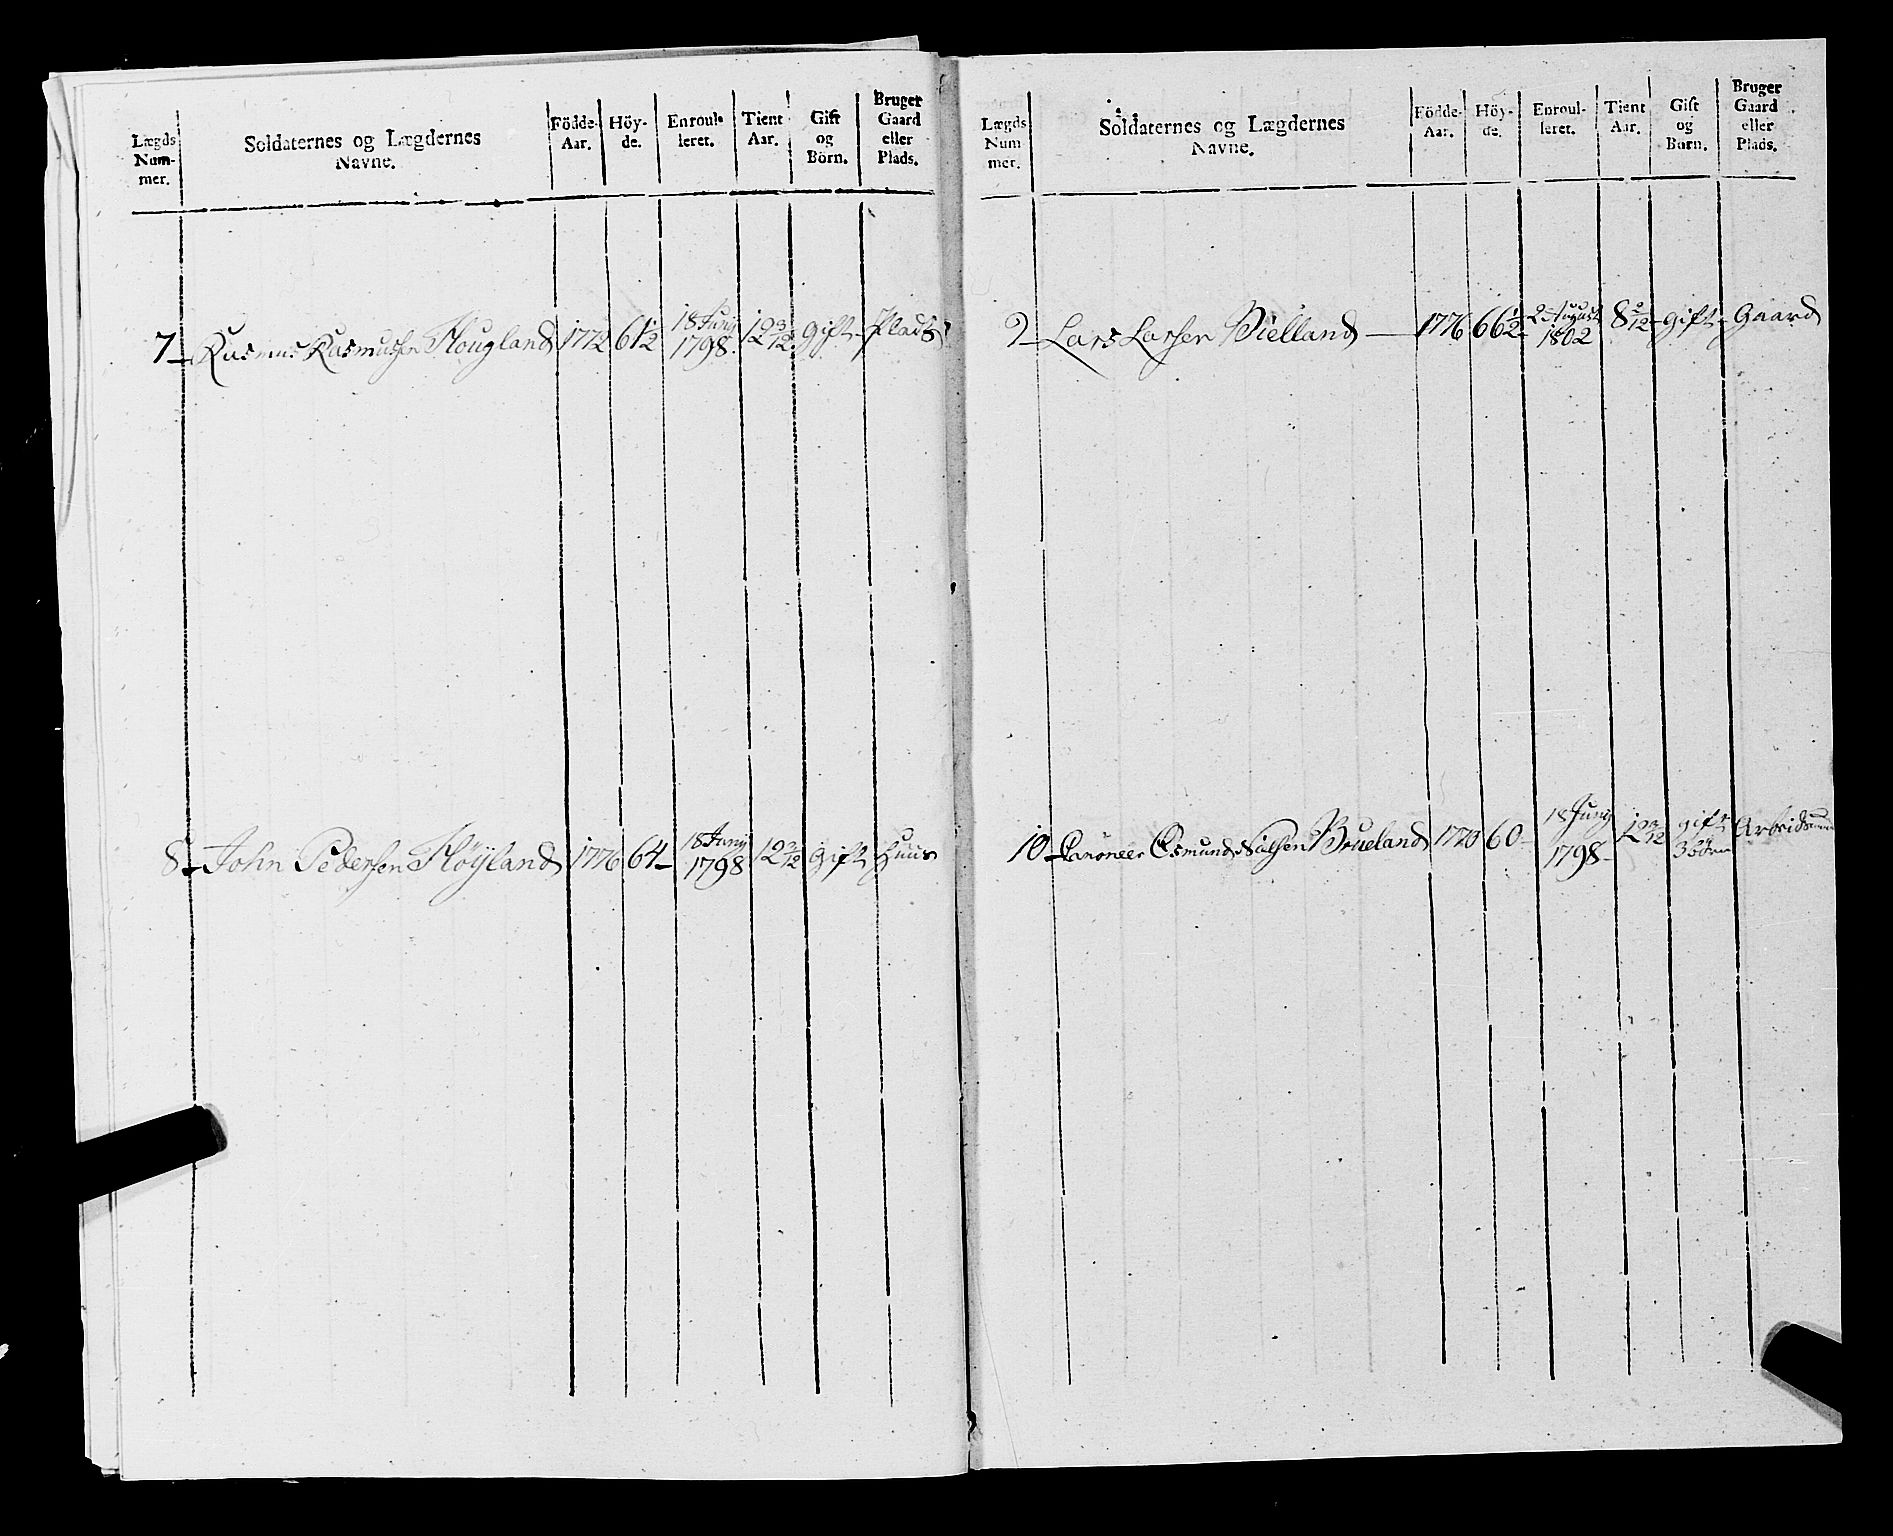 Lægds Num- mer.
Soldaternes og Lægdernes Navne.
Födde- Aar.
Höy- de.
Enroul- leret.
Tient Aar.
Gift og Börn.
Bruger Gaard eller Plads.
7 - Rasmus Rasmussen Hougland 1772 61 1/2 18 Juny 1798. 12 3/12 Gift - Plads
8 - John Pedersen Höyland 1776 64 - 18 Juny 1798 12 3/12 Gift Huus
Lægds Num mer.
Soldaternes og Lægdernes Navne.
Födde- Aar.
Höy- de.
Enroul- leret.
Tient Aar.
Gift og Börn.
Bruger Gaard eller Plads.
9 - Lars Larsen Bielland - 1776 66 1/2 - 2 August 1802 8 2/12 - gift - Gaard
10 - Osmund Nielsen Brueland 1770 60 - 18 Juny 1798 - 12 3/12 gift 3 börn